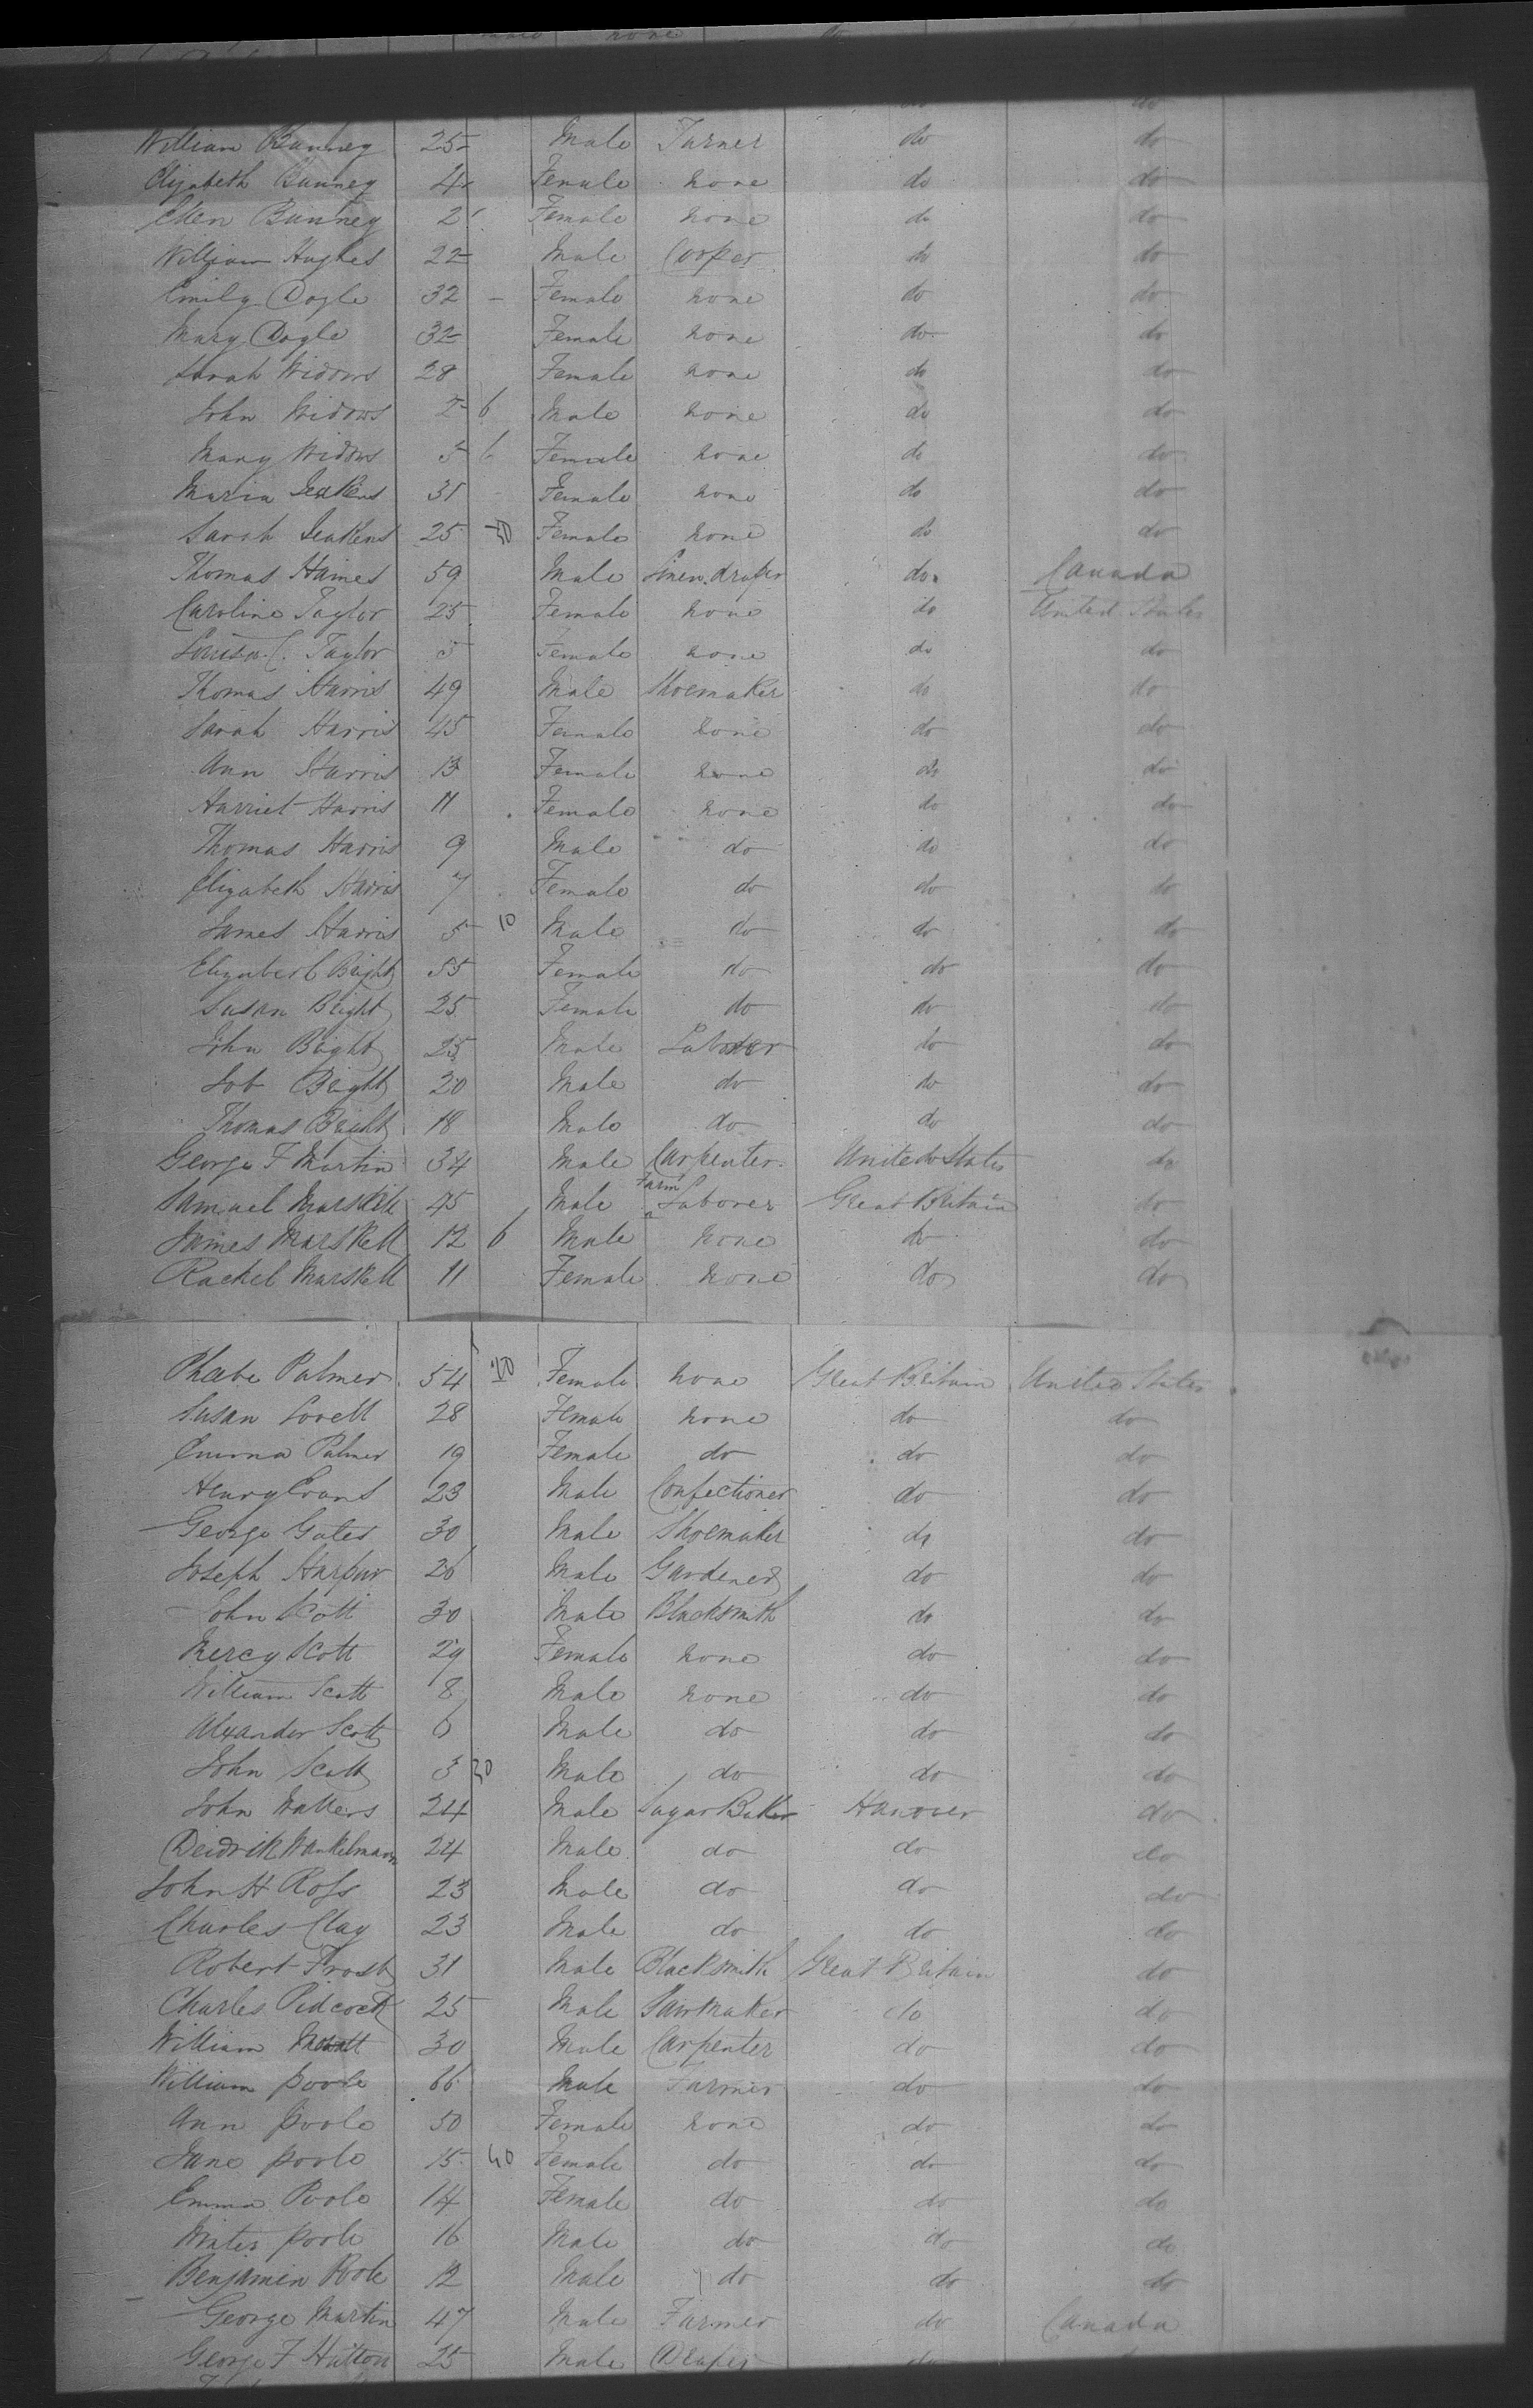 none do
do do
William Bunney 25 Male Turner do do
Elizabeth Bunney 4 Female none do do
Ellen Bunney 2 Female none do do
William Hughes 22 Male Cooper do do
Emily Dogle 32 Female none do do
Mary Dogle 32 Female none do do
Sarah Widows 28 Female none do do
John Widows 2 6 Male none do do
Mary Widows 5 6 Female none do do
Maria Seakens 31 Female none do do
Sarah Seakens 25 Female none do do
Thomas Haines 59 Male Linen draper do Canada
Caroline Taylor 25 Female none do United States
Louisa C. Taylor 5 Female none do do
Thomas Harris 49 Male Shoemaker do do
Sarah Harris 45 Female none do do
Ann Harris 13 Female none do do
Harriet Harris 11 Female none do do
Thomas Harris 9 Male do do do
Elizabeth Harris 7 Female do do do
James Harris 5 10 Male do do do
Elizabeth Bright 55 Female do do do
Susan Bright 25 Female do do do
John Bright 25 Male Laborer do do
Job Bright 20 Male do do do
Thomas Bright 18 Male do do do
George F Martin 34 Male Carpenter United States do
Samuel Marskell 45 Male Farm Laborer Great Britain do
James Marskell 12 6 Male none do do
Rachel Marskell 11 Female none do do
Phoebe Palmer 54 20 Female none Great Britain United States
Susan Lovell 28 Female none do do
Emma Palmer 19 Female do do do
Henry Evans 23 Male Confectioner do do
George Gates 30 Male Shoemaker do do
Joseph Harpur 26 Male Gardener do do
John Scott 30 Male Blacksmith do do
Mercy Scott 29 Female none do do
William Scott 8 Male none do do
Alexander Scott 6 Male do do do
John Scott 3 30 Male do do do
John Walters 24 Male Sugar Baker Hanover do
Deidrik Wankelmann 24 Male do do do
John H Ross 23 Male do do do
Charles Clay 23 Male do do do
Robert Frost 31 Male Blacksmith Great Britain do
Charles Pidcock 25 Male Sawmaker do do
William 30 Male Carpenter do do
William Poole 66 Male Farmer do do
Ann Poole 50 Female none do do
Jane Poole 15 40 Female do do do
Emma Poole 14 Female do do do
Poole 16 Male do do do
Benjamin Poole 12 Male do do do
George Martin 47 Male Farmer do Canada
George F Hutton 25 Male Draper do